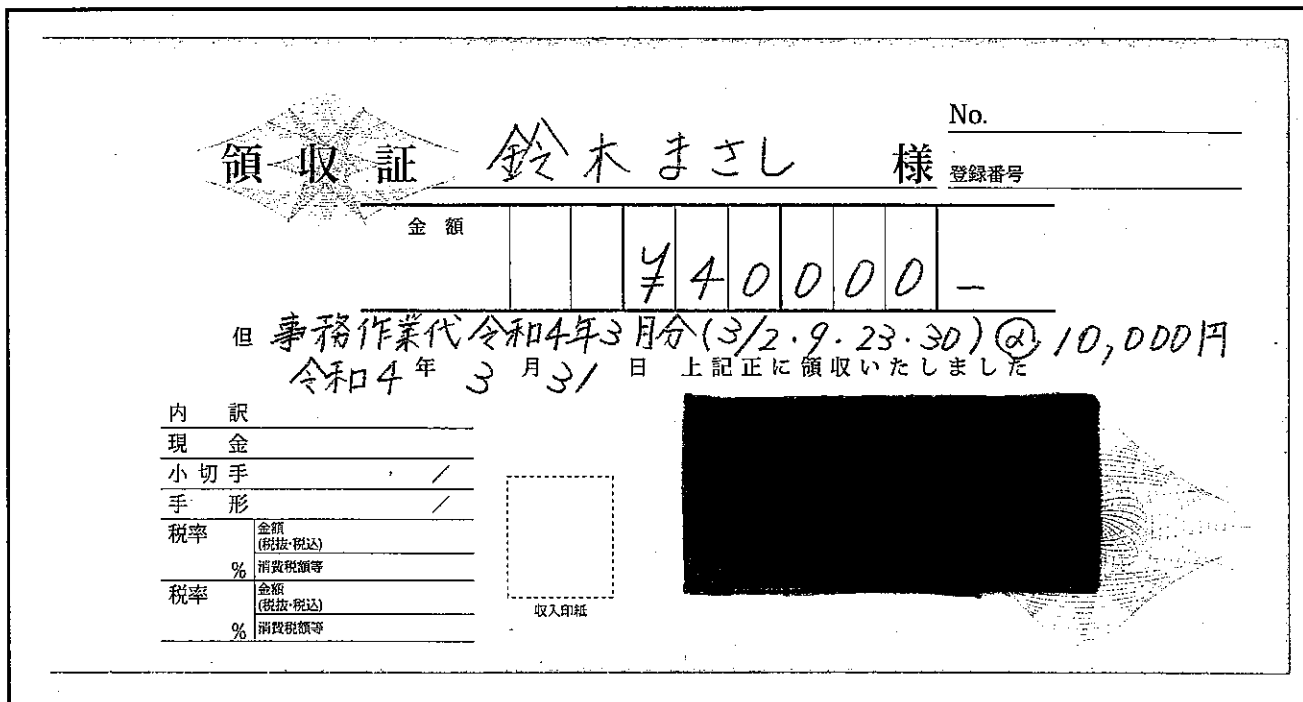 No.
領収証 鈴木まさし 様 登録番号
金額 ¥40000-
但 事務作業代令和4年3月分(3/2.9.23.30)@10,000円
令和4年3月31日 上記正に領収いたしました
内訳
現金
小切手 /
手形 /
税率 % 金額(税抜・税込)
消費税額等
税率 % 金額(税抜・税込)
消費税額等
収入印紙